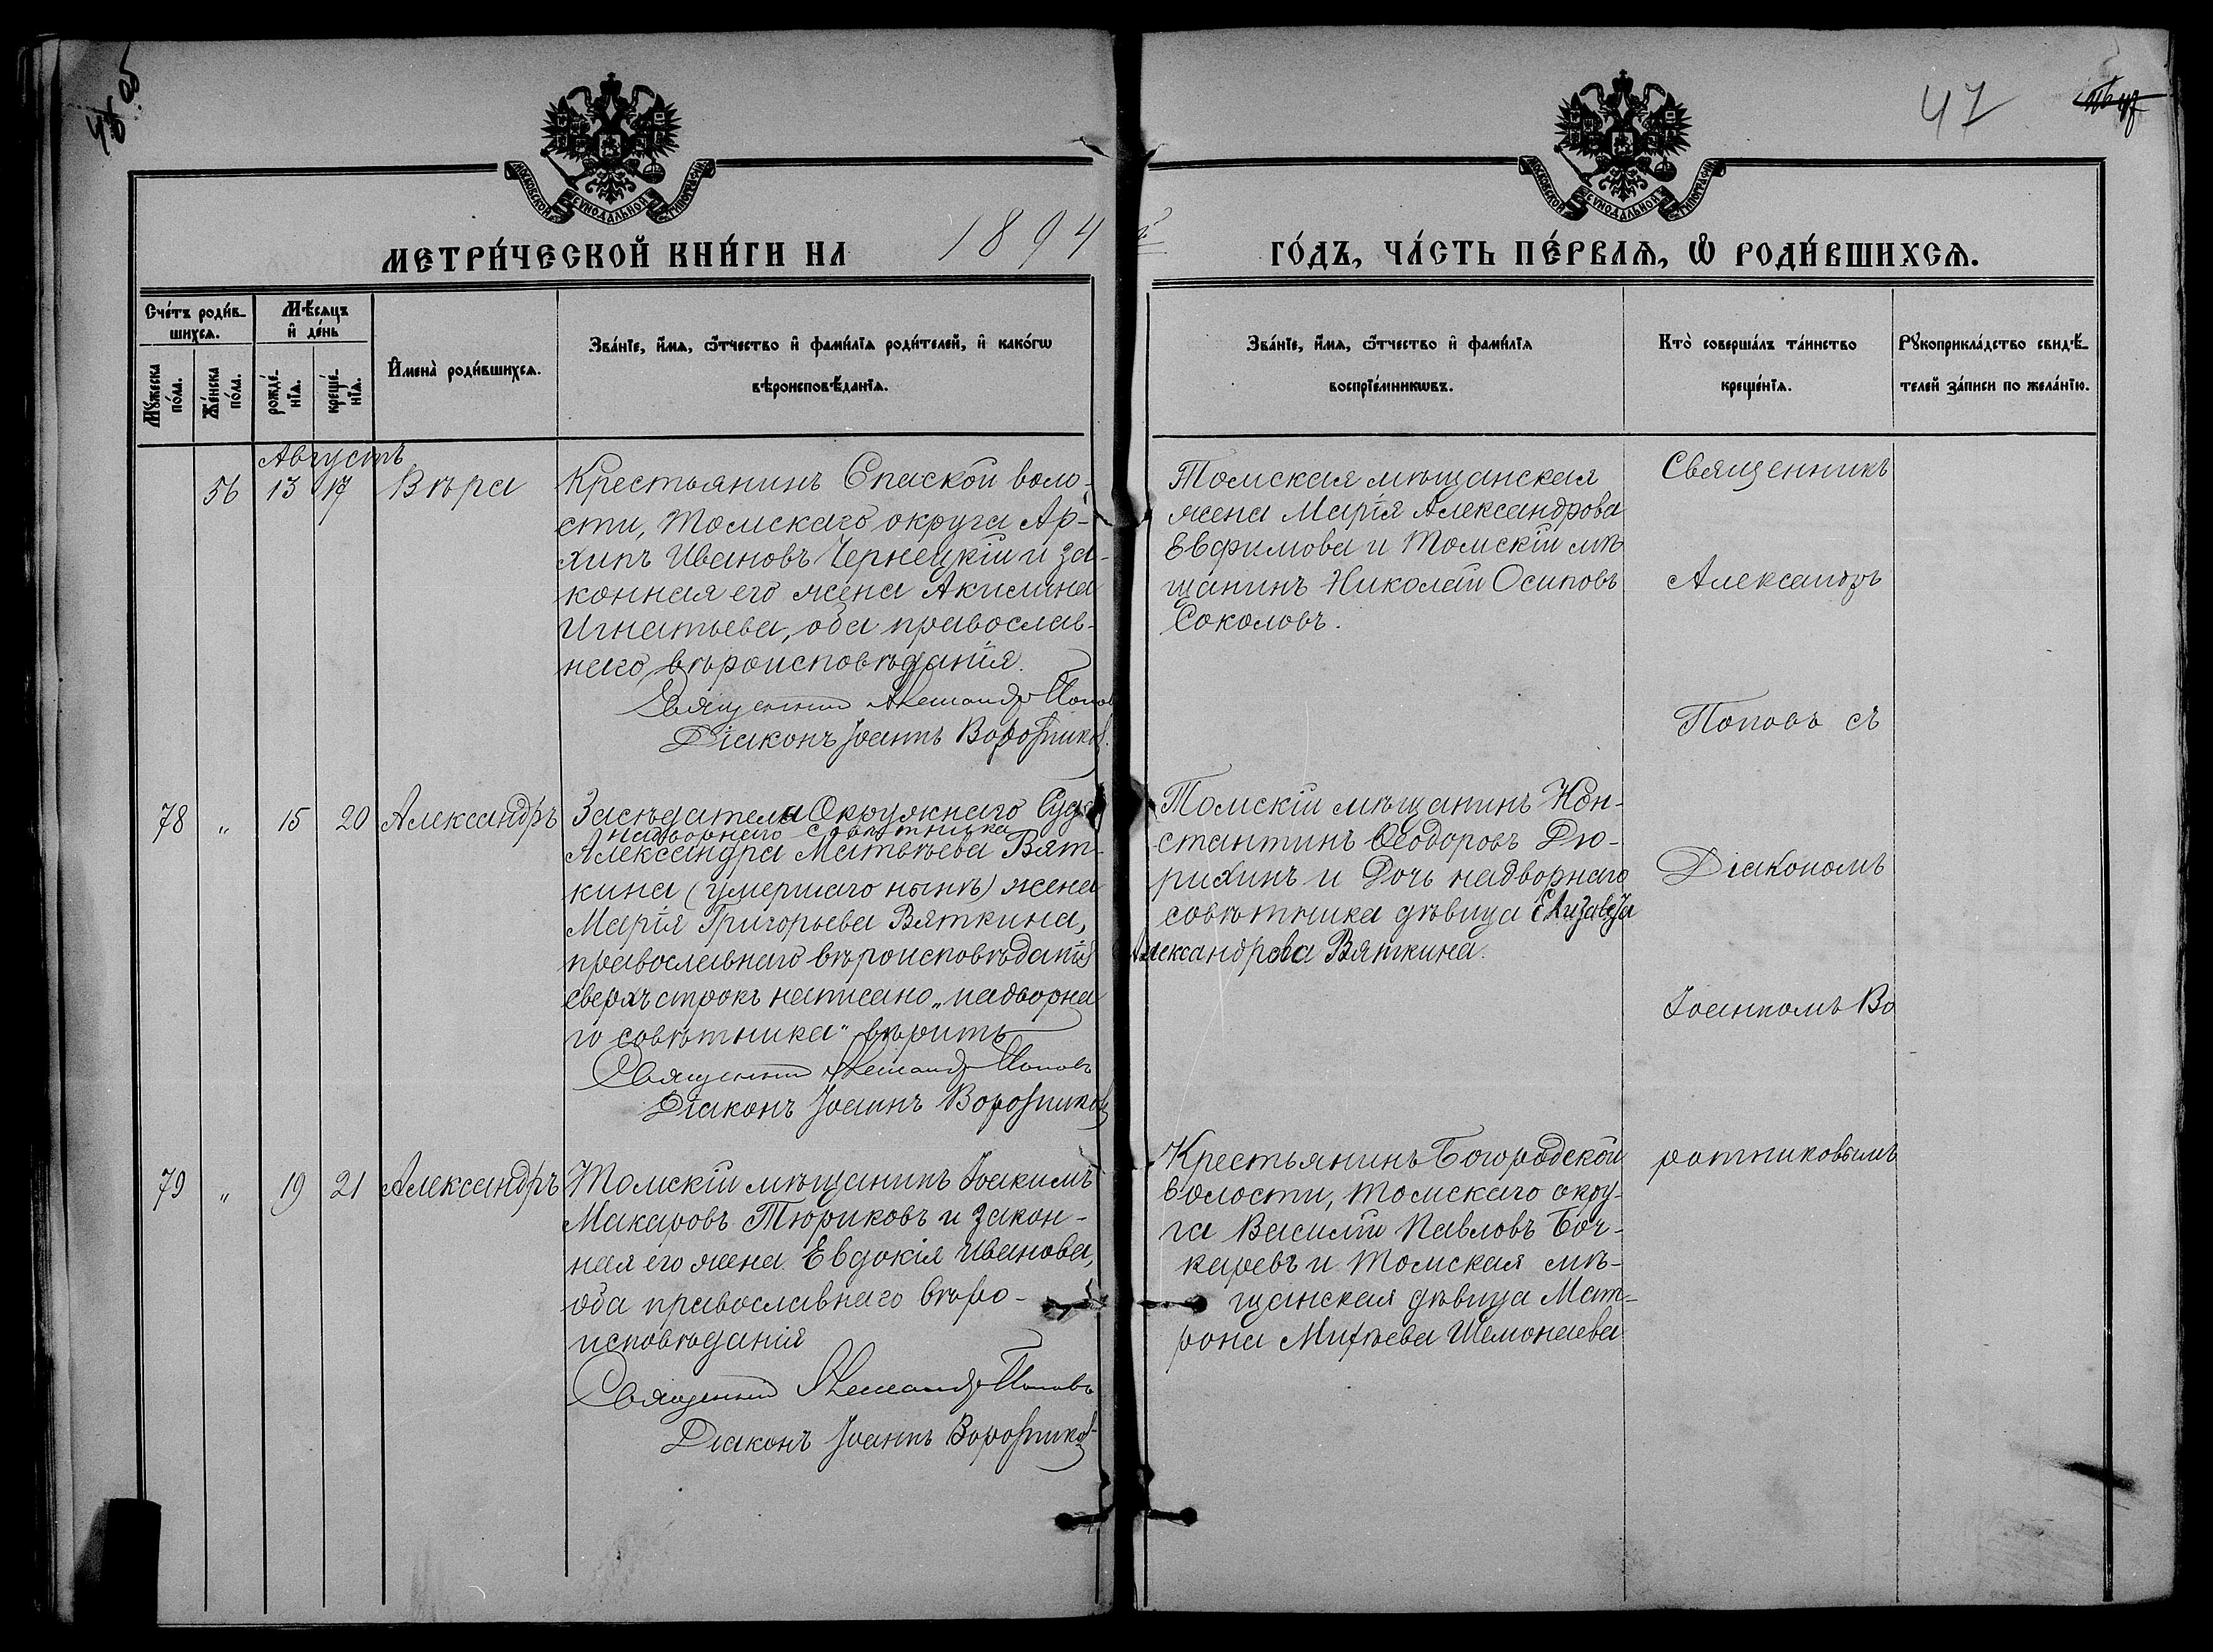 46 об
47
МОСКОВСКОЙ СѴНОДАЛЬНОЙ ТИПОГРАФІИ
МОСКОВСКОЙ СѴНОДАЛЬНОЙ ТИПОГРАФІИ
МЕТРИ́ЧЕСКОЙ КНИ́ГИ НА 1894 й ГО́ДЪ, ЧА́СТЬ ПЕ́РВАѦ, Ѿ РОДИ́ВШИХСѦ.
Сче́тъ роди́в-
шихсѧ.
Мѣ́сѧцъ
и҆ де́нь
Мꙋ́жеска
по́ла.
Же́нска
по́ла.
рожде́-
нїѧ.
креще́-
нїѧ.
И҆мена̀ роди́вшихсѧ.
Зва́нїе, и҆́мѧ, ѻ҆́тчество и҆ фами́лїѧ роди́телей, и҆ како́гѡ
вѣроисповѣ́данїѧ.
Зва́нїе, и҆́мѧ, ѻ҆́тчество и҆ фами́лїѧ
воспрїе́мникѡвъ.
Кто̀ соверша́лъ та́инство
креще́нїѧ.
Рꙋкоприкла́дство свидѣ́-
телей за́писи по жела́нїю.
Августъ
56 13 17 Вѣра
Крестьянинъ Спаской воло-
сти, Томскаго округа Ар-
хипъ Ивановъ Чернецкій и за-
конная его жена Акилина
Игнатьева, оба православ-
наго вѣроисповѣданія.
Священникъ Александръ Поповъ
Діаконъ Іоаннъ Воротников
Томская мѣщанская
жена Марія Александрова
Евфимова и Томскій мѣ
щанинъ Николай Осиповъ
Соколовъ.
Священникъ
Александръ
Поповъ съ
78 „ 15 20 Александръ
Засѣдателя Окружнаго Суда
надворнаго совѣтника
Александра Матвѣева Вят-
кина (умершаго нынѣ) жена
Марія Григорьева Вяткина,
православнаго вѣроисповѣданія
сверхъ строкъ написано „надворна
го совѣтника" вѣрить
Священникъ Александръ Поповъ
Діаконъ Іоаннъ Воротников
Томскій мѣщанинъ Кон-
стантинъ Ѳеодоровъ Дю-
рихинъ и Дочь надворнаго
совѣтника дѣвица Елизавета
Александрова Вяткина.
Діакономъ
Іоанномъ Во
79 „ 19 21 Александръ
Томскій мѣщанинъ Іоакимъ
Макаровъ Тюриковъ и закон-
ная его жена Евдокія Иванова,
оба православнаго вѣро-
исповѣданія
Священникъ Александръ Поповъ
Діаконъ Іоаннъ Воротников
Крестьянинъ Богородской
волости, Томскаго окру-
га Василій Павловъ Боч-
каревъ и Томская мѣ-
щанская дѣвица Мат-
рона Михѣева Шемонаева
ротниковымъ